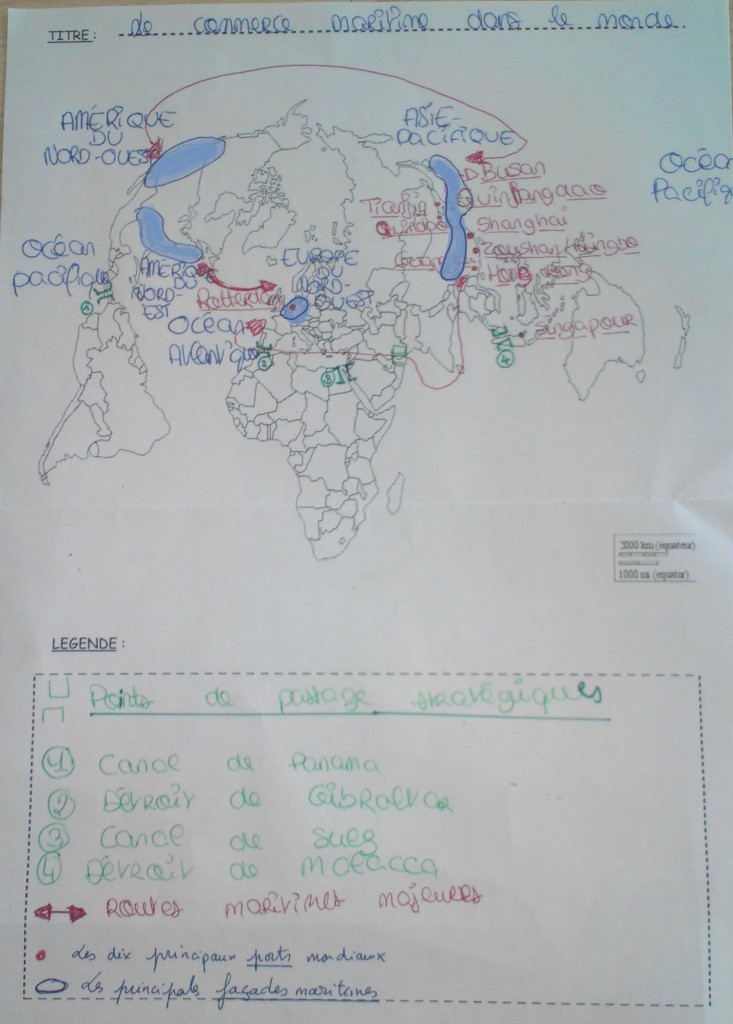 TITRE : Le commerce maritime dans le monde.
AMÉRIQUE
DU
NORD-OUEST
ASIE-
PACIFIQUE
Océan
Pacifiq
Busan
Quinhangdao
Tianjin
Shanghai
Zoushan/Ningbo
Hong Kong
Singapour
Océan
pacifique
AMÉRIQUE
DU
NORD-
EST
Rotterdam
EUROPE
DU
NORD-
OUEST
Océan
Atlantique
2
3
4
3000 km (equateur)
1000 mi (equator)
LEGENDE :
Points de passage stratégiques
1 Canal de Panama
2 Détroit de Gibraltar
3 Canal de Suez
4 Détroit de Malacca
Routes maritimes majeures
Les dix principaux ports mondiaux
Les principales façades maritimes